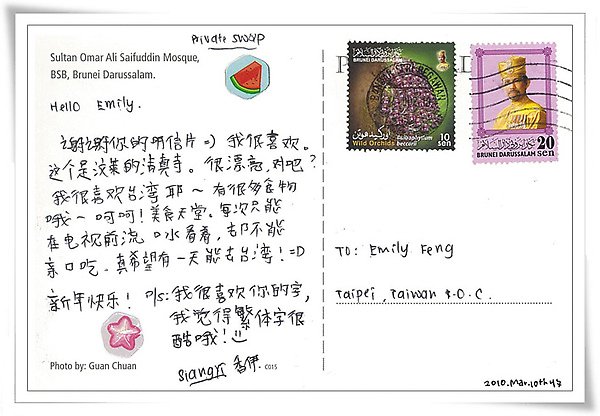 Private swap
Sultan Omar Ali Saifuddin Mosque,
BSB, Brunei Darussalam.
Hello Emily.
谢谢你的明信片=) 我很喜欢。
这个是汶莱的清真寺。很漂亮,对吧?
我很喜欢台湾耶~有很多食物
哦~呵呵!美食天堂。每次只能
在电视前流口水看着,却不能
亲口吃。真希望有一天能去台湾!=D
新年快乐! P/s:我很喜欢你的字,
我觉得繁体字很
酷哦!
siangyi 香伊
Photo by: Guan Chuan
C015
BRUNEI DARUSSALAM
Bulbophyllum
beccarii
Wild Orchids
10
sen
20
sen
BRUNEI DARUSSALAM
TO: Emily Feng
Taipei, Taiwan R.O.C.
2010.Mar.10th 43